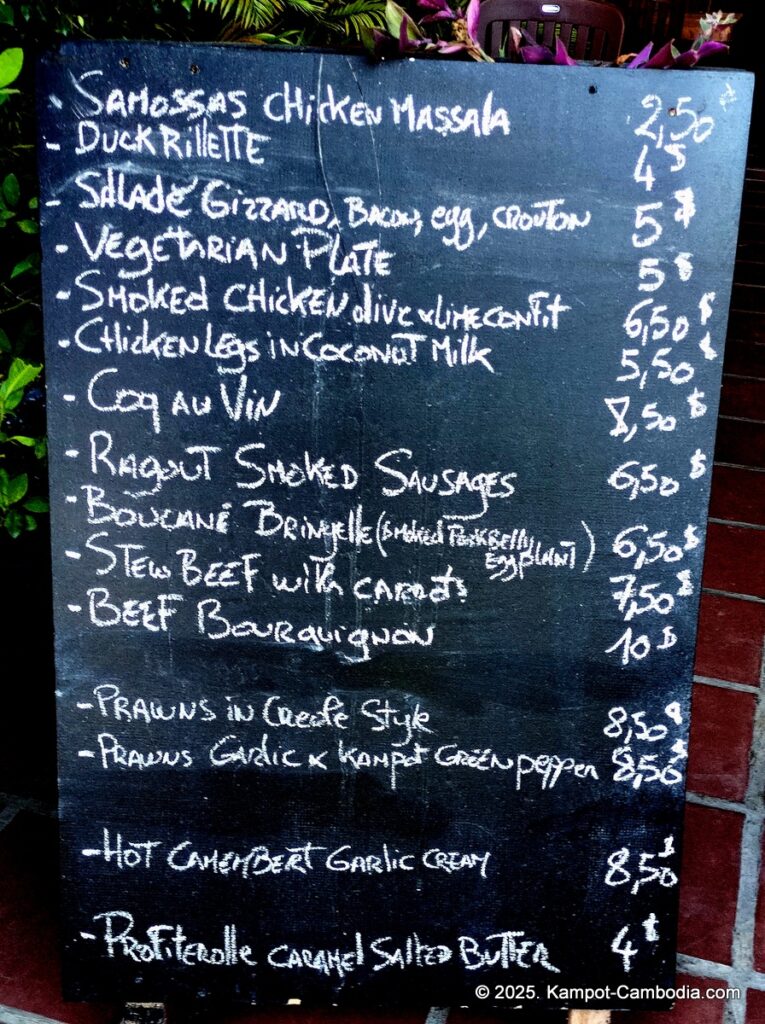 - SAMOSSAS CHICKEN MASSALA 2,50
- DUCK RILLETTE 4 $
- SALADE GIZZARD, BACON, egg, CROUTON 5 $
- VEGETARIAN PLATE 5 $
- SMOKED CHICKEN olive x LIME CONFIT 6,50 $
- CHICKEN Legs in COCONUT Milk 5,50 $
- COQ AU VIN 8,50 $
- RAGOUT SMOKED SAUSAGES 6,50 $
- BOUCANÉ BRINGELLE (SMOKED PORK BELLY EGGPLANT) 6,50 $
- STEW BEEF with CARROTS 7,50 $
- BEEF BOURQUIGNON 10 $
- PRAWNS in Creole Style 8,50 $
- PRAWNS Garlic x KAMPOT GREEN pepper 8,50 $
- HOT CAMEMBERT GARLIC CREAM 8,50 $
- PROFITEROLLE CARAMEL SALTED BUTTER 4 $
© 2025. Kampot-Cambodia.com